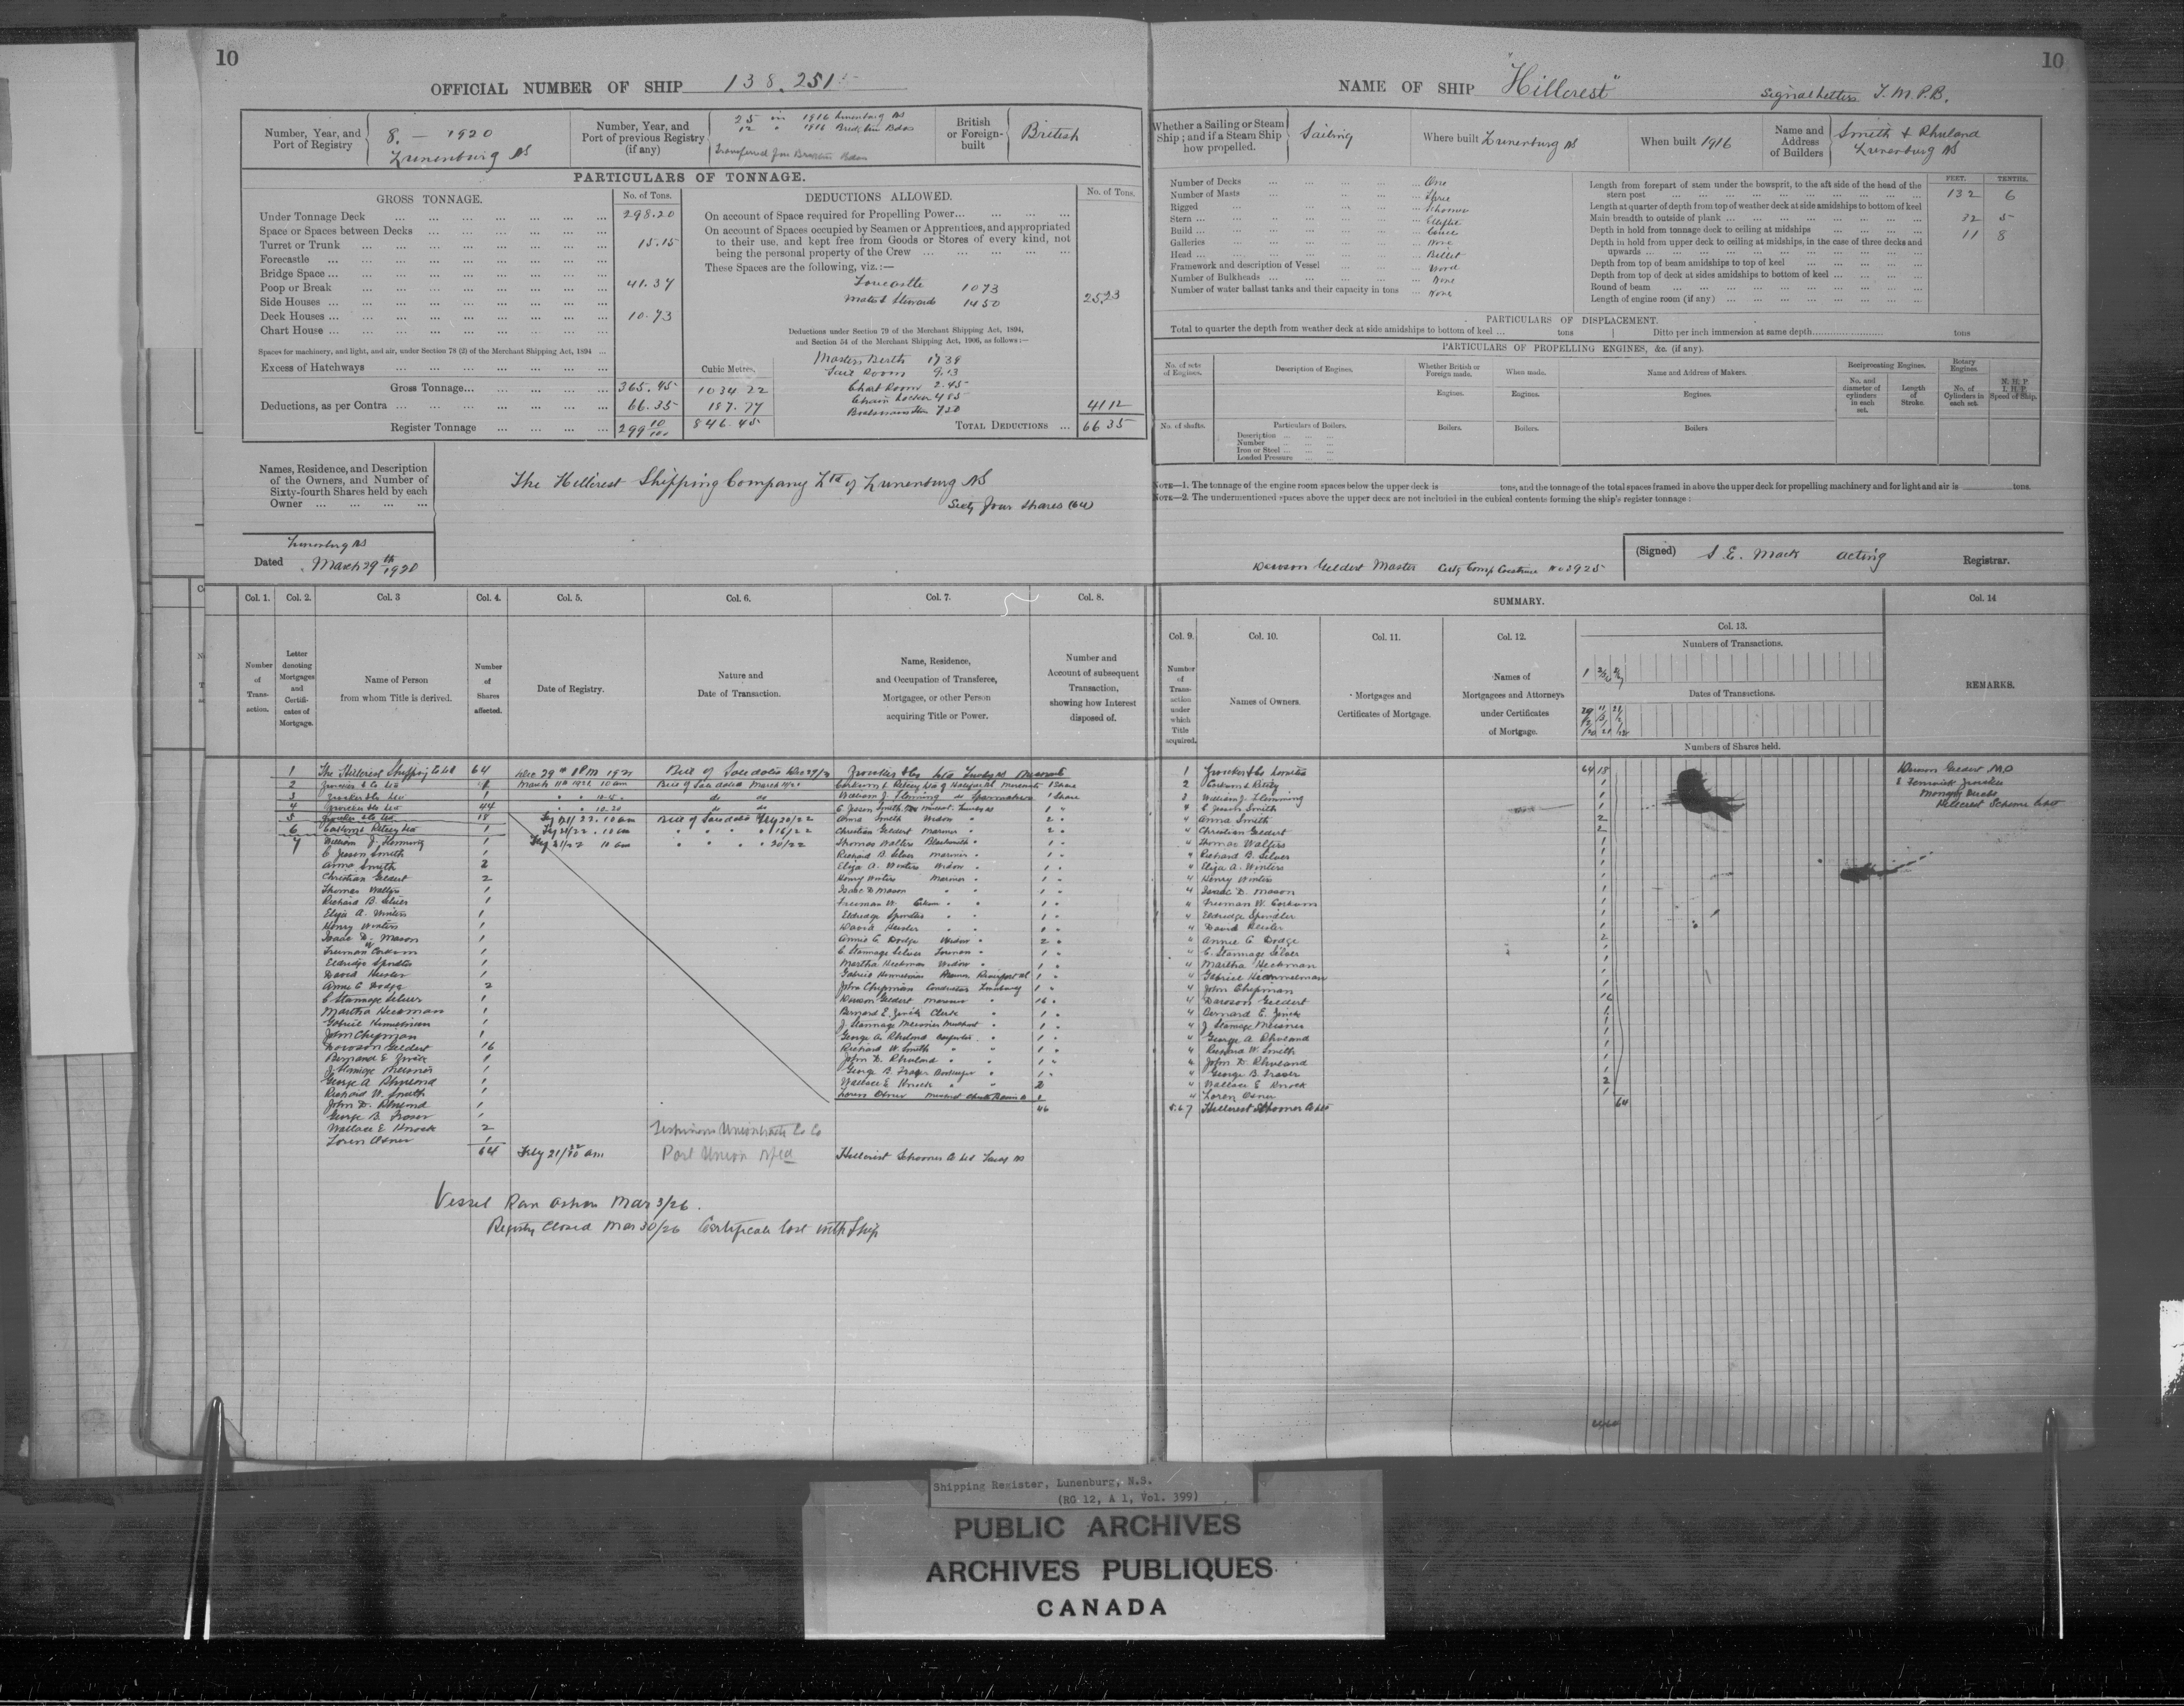 10
OFFICIAL NUMBER OF SHIP 138.251
Number, Year, and Port of Registry
8. — 1920
Lunenburg NS
Number, Year, and Port of previous Registry (if any)
25 in 1916 Lunenburg NS
12 " 1916 Bdos
Transferred from Bdos
British or Foreign-built
British
PARTICULARS OF TONNAGE.
GROSS TONNAGE. No. of Tons.
Under Tonnage Deck 298.20
Space or Spaces between Decks
Turret or Trunk 15.15
Forecastle
Bridge Space
Poop or Break 41.37
Side Houses
Deck Houses 10.73
Chart House
Spaces for machinery, and light, and air, under Section 78 (2) of the Merchant Shipping Act, 1894
Excess of Hatchways Cubic Metres.
Gross Tonnage 365.45 1034.22
Deductions, as per Contra 66.35 187.77
Register Tonnage 299 10/100 846.45
DEDUCTIONS ALLOWED. No. of Tons.
On account of Space required for Propelling Power
On account of Spaces occupied by Seamen or Apprentices, and appropriated
to their use, and kept free from Goods or Stores of every kind, not
being the personal property of the Crew
These Spaces are the following, viz.:—
Forecastle 1073
Mate & Stewards 1450 2523
Deductions under Section 79 of the Merchant Shipping Act, 1894,
and Section 54 of the Merchant Shipping Act, 1906, as follows:—
Masters Berth 17 39
Sail Room 9.13
Chart Room 2.45
Chain Locker 4 85
Boatswains Stores 720 41 12
TOTAL DEDUCTIONS 66 35
Names, Residence, and Description
of the Owners, and Number of
Sixty-fourth Shares held by each
Owner
The Hillcrest Shipping Company Ltd of Lunenburg NS
Sixty four Shares (64)
Lunenburg NS
Dated March 29th 1920
Col. 1. Col. 2. Col. 3 Col. 4. Col. 5. Col. 6. Col. 7. Col. 8.
Number of Transaction.
Letter denoting Mortgages and Certificates of Mortgage.
Name of Person from whom Title is derived.
Number of Shares affected.
Date of Registry.
Nature and Date of Transaction.
Name, Residence, and Occupation of Transferee, Mortgagee, or other Person acquiring Title or Power.
Number and Account of subsequent Transaction, showing how Interest disposed of.
1 The Hillcrest Shipping Co Ltd 64 Dec 29th
2 Zwicker & Co Ltd 1 March 11th 10 am Bill of Sale dated March
3 Zwicker & Co Ltd 1 William J. Flemming 1 Share
4 Zwicker & Co Ltd 44 C Jesson Smith
5 Zwicker & Co Ltd 18 10 am Bill of Sale dated Feby 20/22 Anna Smith Widow 2
6 1 Feby 21/22 10 am 16/22 Christian Geldert Mariner 2
7 William J. Flemming 1 Feby 21/22 10 am 20/22 Thomas Walters Blacksmith 1
C Jesson Smith 1 Richard B. Silver Mariner 1
Anna Smith 2 Eliza A. Winters Widow 1
Christian Geldert 2 Henry Winters Mariner 1
Thomas Walters 1 Isaac D Mason 1
Richard B. Silver 1 Freeman W. Corkum 1
Eliza A. Winters 1 Eldredge Spindler 1
Henry Winters 1 David Heisler
Isaac D. Mason 1 Annie C Dodge Widow 2
Freeman W Corkum 1 C Stannage Silver 1
Eldredge Spindler 1 Martha Heckman Widow 1
David Heisler 1 Gabriel Himmelman 1
Annie C Dodge 2 John Chipman Conductor Lunenburg 1
C Stannage Silver 1 Dawson Geldert Mariner 16
Martha Heckman 1 Bernard E. Zwicker Clerk 1
Gabriel Himmelman 1 J Stannage Meisner Merchant 1
John Chipman 1 George A. Rhuland Carpenter 1
Dawson Geldert 16 Richard W. Smith 1
Bernard E Zwicker 1 John D. Rhuland 1
J Stannage Meisner 1 George B. Fraser 1
George A Rhuland 1 Wallace E Knock 2
Richard W. Smith 1 Loren Osner 1
John D. Rhuland 1 46
George B. Fraser 1
Wallace E Knock 2
Loren Osner 1
64 Feby 21/22 10 am Hillcrest Schooner Co Ltd
Port Union Nfld
Vessel Ran ashore Mar 3/26.
Registry Closed Mar 30/26 Certificate lost with Ship
10
NAME OF SHIP "Hillcrest"
Signal Letters T.M.P.B.
Whether a Sailing or Steam Ship; and if a Steam Ship how propelled.
Sailing
Where built Lunenburg NS
When built 1916
Name and Address of Builders
Smith & Rhuland
Lunenburg NS
Number of Decks One
Number of Masts Three
Rigged Schooner
Stern Elliptic
Build Carvel
Galleries None
Head Billet
Framework and description of Vessel Wood
Number of Bulkheads None
Number of water ballast tanks and their capacity in tons None
FEET. TENTHS.
Length from forepart of stem under the bowsprit, to the aft side of the head of the
stern post 132 6
Length at quarter of depth from top of weather deck at side amidships to bottom of keel
Main breadth to outside of plank 32 5
Depth in hold from tonnage deck to ceiling at midships 11 8
Depth in hold from upper deck to ceiling at midships, in the case of three decks and
upwards
Depth from top of beam amidships to top of keel
Depth from top of deck at sides amidships to bottom of keel
Round of beam
Length of engine room (if any)
PARTICULARS OF DISPLACEMENT.
Total to quarter the depth from weather deck at side amidships to bottom of keel ... tons Ditto per inch immersion at same depth tons
PARTICULARS OF PROPELLING ENGINES, &c. (if any).
No. of sets of Engines.
Description of Engines.
Whether British or Foreign made.
When made.
Name and Address of Makers.
Reciprocating Engines.
Rotary Engines.
N. H. P.
I. H. P.
Speed of Ship.
Engines. Engines. Engines.
No. and diameter of cylinders in each set.
Length of Stroke.
No. of Cylinders in each set.
No. of shafts.
Particulars of Boilers.
Description
Number
Iron or Steel
Loaded Pressure
Boilers. Boilers. Boilers
NOTE—1. The tonnage of the engine room spaces below the upper deck is tons, and the tonnage of the total spaces framed in above the upper deck for propelling machinery and for light and air is tons.
NOTE—2. The undermentioned spaces above the upper deck are not included in the cubical contents forming the ship's register tonnage:
Dawson Geldert Master No 3925
(Signed) S. E. Mack acting Registrar.
SUMMARY.
Col. 9. Col. 10. Col. 11. Col. 12. Col. 13. Col. 14
Number of Transaction under which Title acquired.
Names of Owners.
Mortgages and Certificates of Mortgage.
Names of Mortgagees and Attorneys under Certificates of Mortgage.
Numbers of Transactions.
Dates of Transactions.
Numbers of Shares held.
REMARKS.
1 Zwicker & Co Limited 64 18
2 1
3 William J. Flemming 1
4 C Jesson Smith 1
4 Anna Smith 2
4 Christian Geldert 2
4 Thomas Walters 1
4 Richard B. Silver 1
4 Eliza A. Winters 1
4 Henry Winters 1
4 Isaac D. Mason 1
4 Freeman W. Corkum 1
4 Eldredge Spindler 1
4 David Heisler 1
4 Annie C Dodge 2
4 C. Stannage Silver 1
4 Martha Heckman 1
4 Gabriel Himmelman 1
4 John Chipman 1
4 Dawson Geldert 16
4 Bernard E. Zwicker 1
4 J Stannage Meisner 1
4 George A Rhuland 1
4 Richard W. Smith 1
4 John D. Rhuland 1
4 George B. Fraser 1
4 Wallace E Knock 2
4 Loren Osner 1
5.6.7 Hillcrest Schooner Co Ltd 64
Dawson Geldert M.O
Zwicker
Hillcrest Schooner
Shipping Register, Lunenburg, N.S.
(RG 12, A 1, Vol. 399)
PUBLIC ARCHIVES
ARCHIVES PUBLIQUES
CANADA